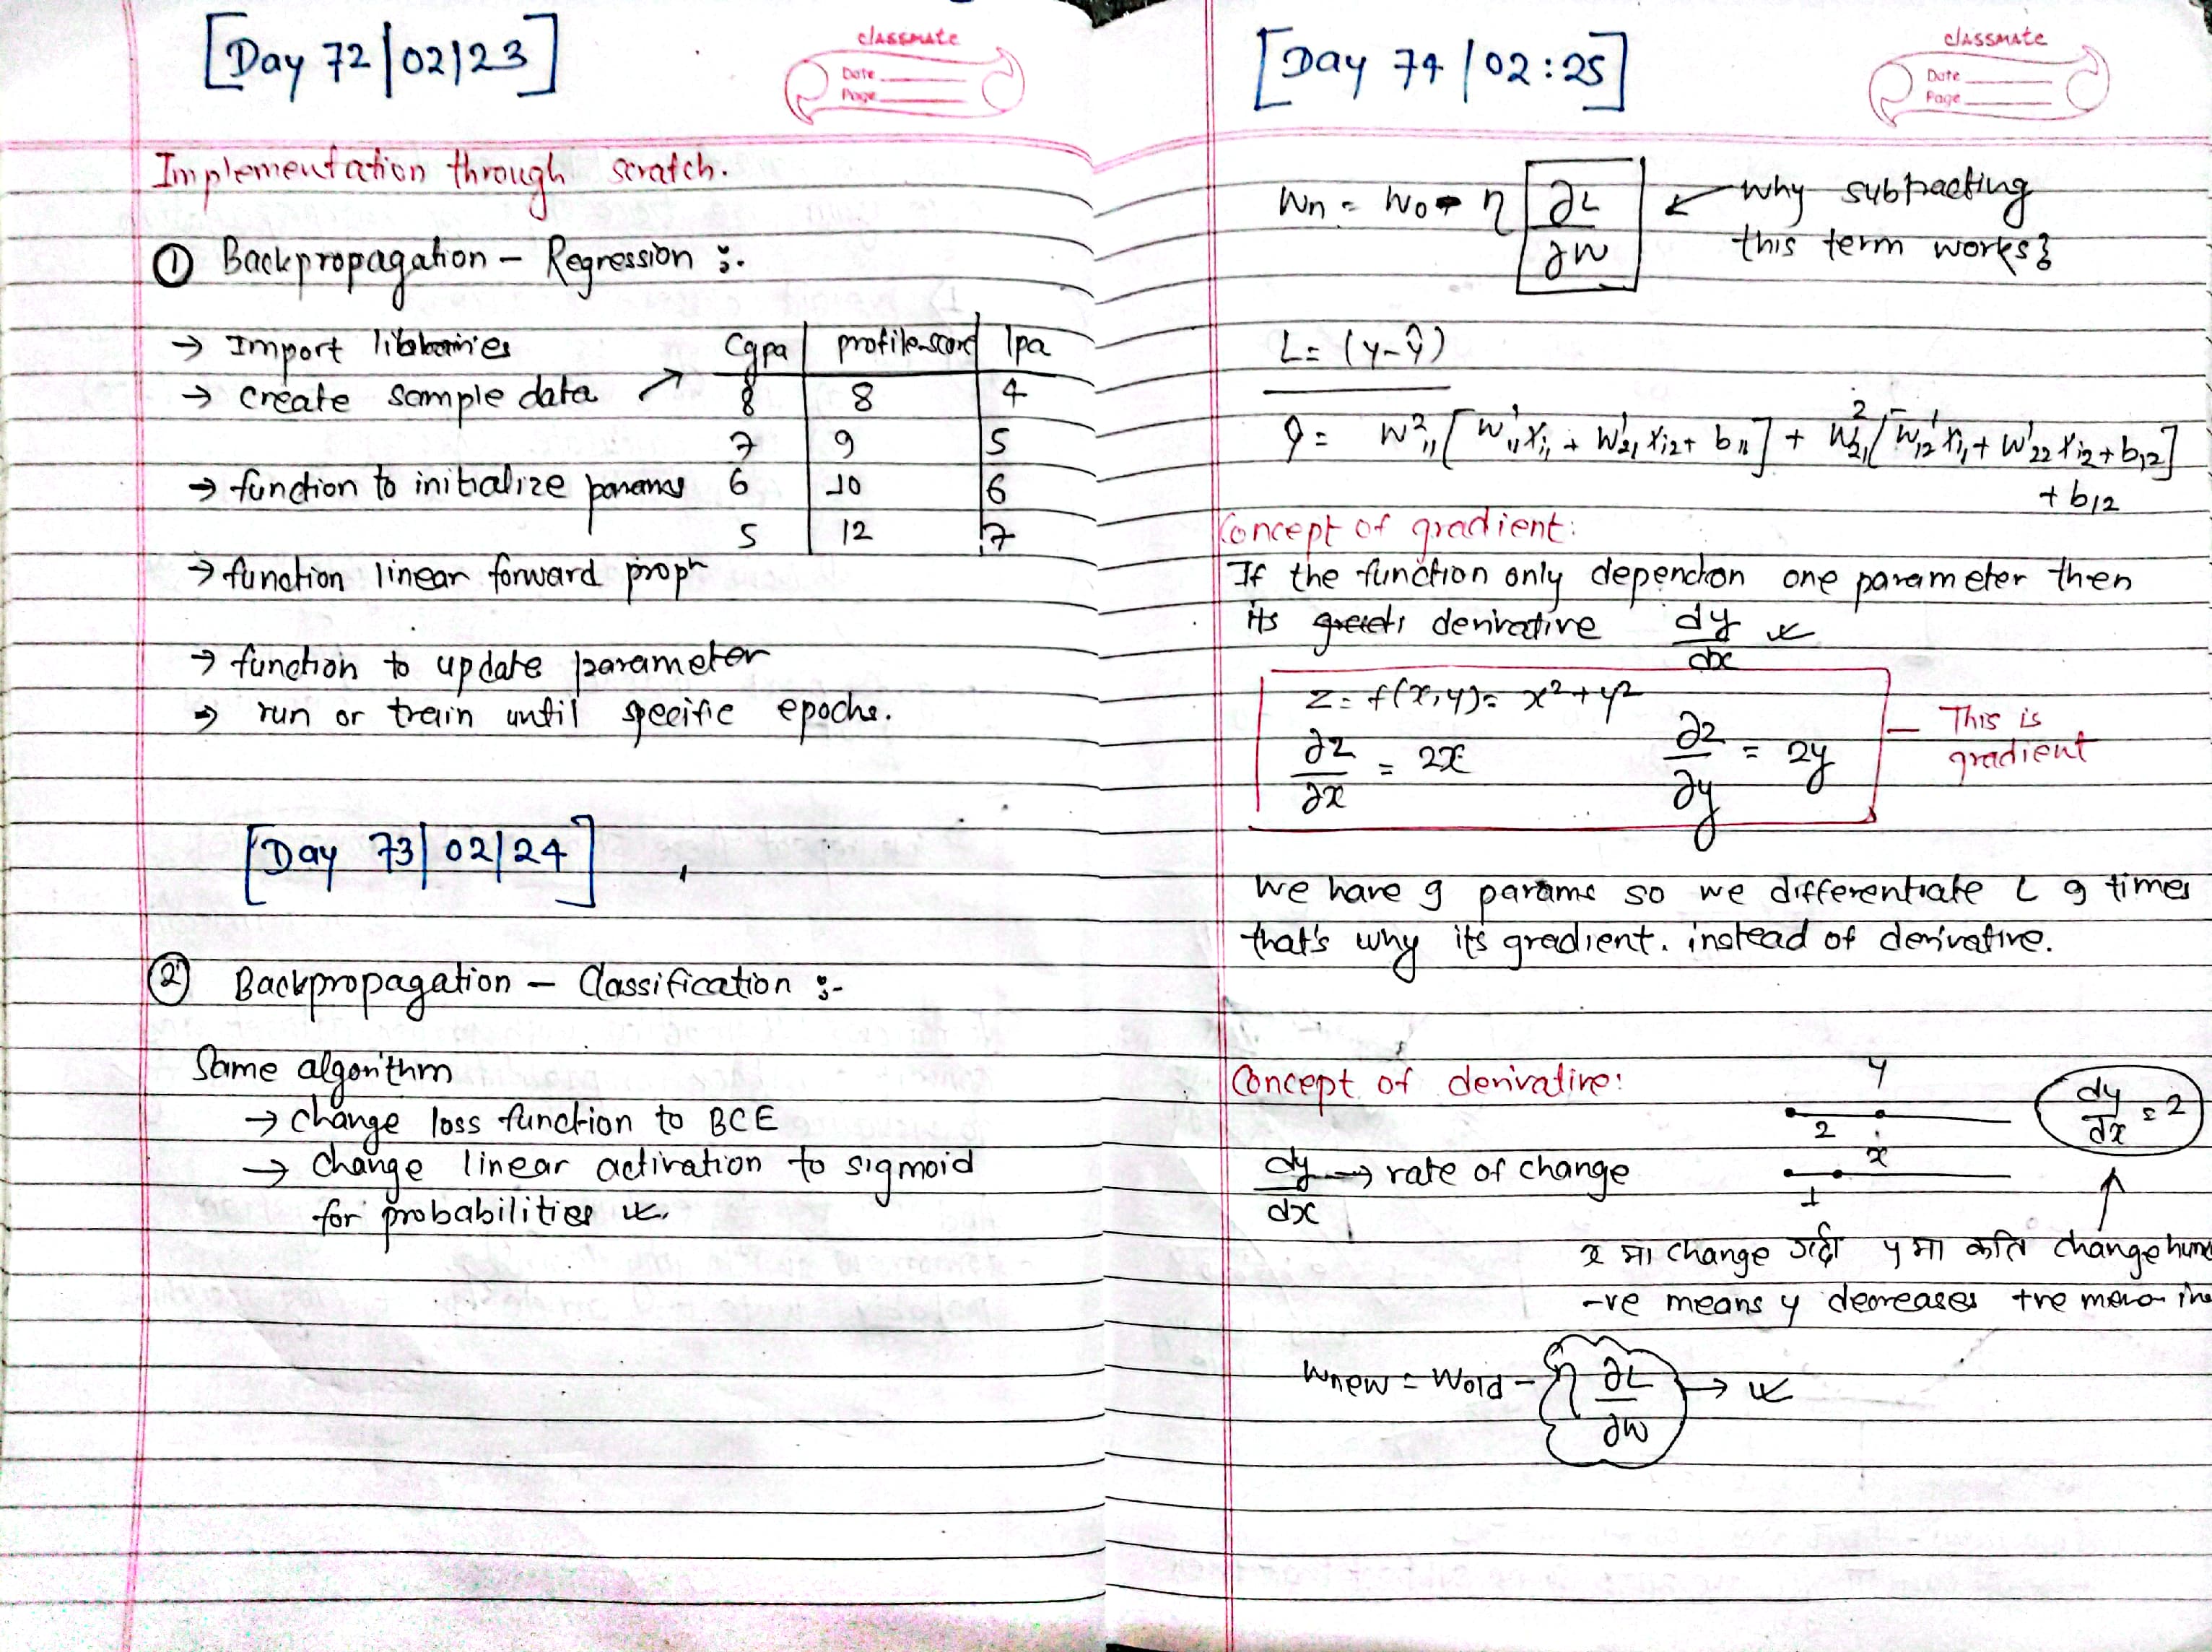 [Day 72|02|23]
classmate
Date
Page
Implementation through scratch.
① Backpropagation – Regression :-
→ Import libraries
→ create sample data ↗
cgpa | profile-score | lpa
8 | 8 | 4
7 | 9 | 5
6 | 10 | 6
5 | 12 | 7
→ function to initialize params
→ function linear forward propⁿ
→ function to update parameter
→ run or train until specific epochs.
[Day 73|02|24]
② Backpropagation – Classification :-
Same algorithm
→ change loss function to BCE
→ change linear activation to sigmoid
for probabilities
[Day 74|02:25]
classmate
Date
Page
Wn = Wo - η ∂L/∂W ← why subtracting
this term works?
L = (y-ŷ)
ŷ = W²₁₁[W¹₁₁xᵢ₁ + W¹₂₁xᵢ₂ + b₁₁] + W²₂₁[W¹₁₂xᵢ₁ + W¹₂₂xᵢ₂ + b₁₂]
+ b₁₂
Concept of gradient:
If the function only depend on one parameter then
its derivative dy/dx
z = f(x,y) = x² + y²
∂z/∂x = 2x ∂z/∂y = 2y
— This is
gradient
We have 9 params so we differentiate L 9 times
that's why its gradient. instead of derivative.
Concept of derivative:
y
2
x
1
dy/dx = 2
dy/dx → rate of change
x मा change गर्दा y मा कति change hun
-ve means y decreases +ve mean in
Wnew = Wold - η ∂L/∂W →